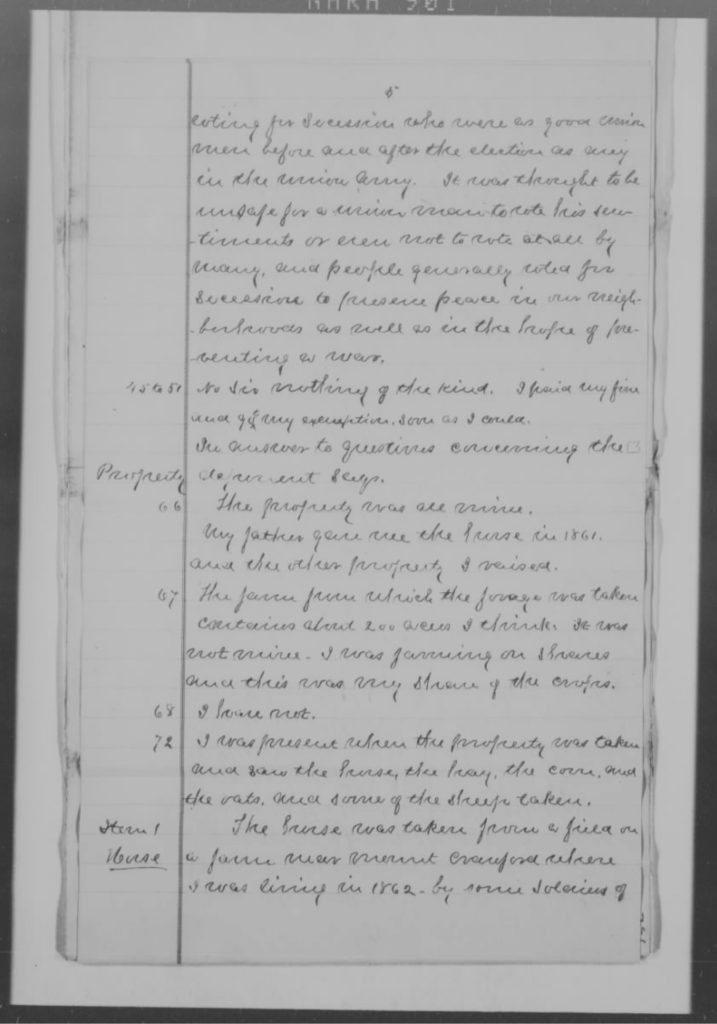 5
voting for Secession who were as good union
men before and after the election as any
in the union Army. It was thought to be
unsafe for a union man to vote his sen-
-timents or even not to vote at all by
many, and people generally voted for
Secession to preserve peace in our neigh-
-borhoods as well as in the hope of pre-
-venting a war.
45 to 51 No Sir nothing of the kind. I paid my fine
and got my exemption, soon as I could.
In answer to questions concerning the
Property deponent says.
66 The property was all mine.
My father gave me the horse in 1861.
and the other property I raised.
67 The farm from which the forage was taken
contains about 200 acres I think. It was
not mine - I was farming on Shares
and this was my share of the crops.
68 I have not.
72 I was present when the property was taken
and saw the horse, the hay, the corn, and
the oats, and some of the sheep taken.
Item 1 The horse was taken from a field on
Horse a farm near mount Crawford where
I was living in 1862 - by some Soldiers of